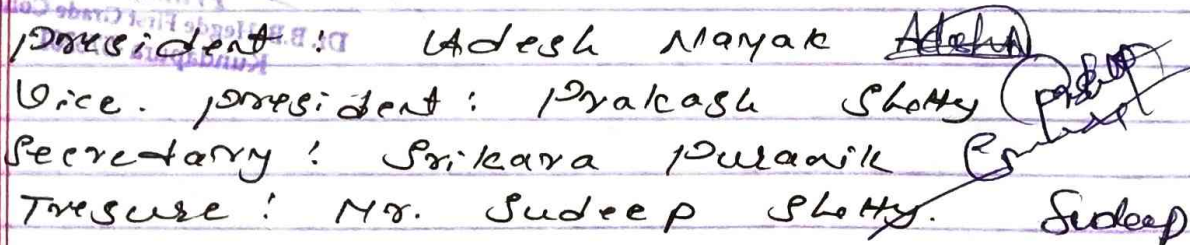 president : Adesh Nayak Adesh
Vice. president : Prakash Shetty
Secretary : Srikara Puranik
Tresure : Mr. Sudeep Shetty. Sudeep